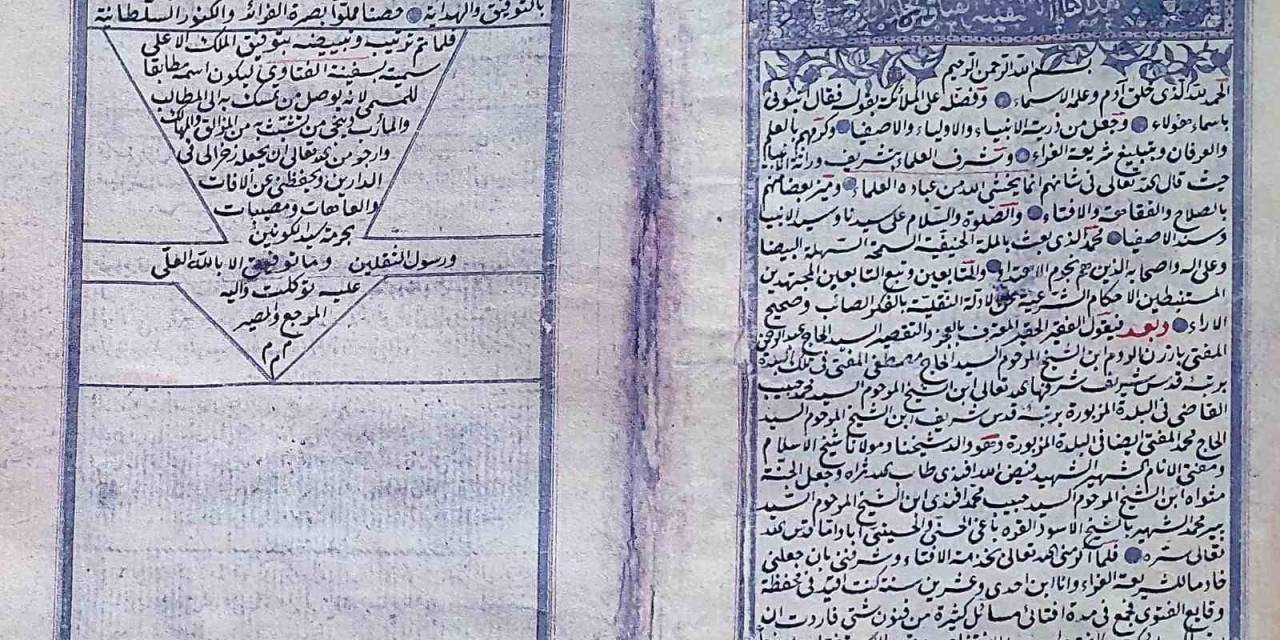 بسم الله الرحمن الرحيم
الحمد لله الذي خلق آدم وعلمه الاسماء وفضله على الملائكة بقوله فقال انبئوني
باسماء هؤلاء وجعل من ذريته الانبياء والاولياء والاصفياء وكرمهم بالعلم
والعرفان وبتبليغ شريعة الغراء وشرف العلماء بتشريف وراثة الانبياء
حيث قال الله تعالى في شانهم انما يخشى الله من عباده العلماء وميز بعضا منهم
بالصلاح والفقاهة والافتاء والصلوة والسلام على سيدنا وسيد الانبياء
وسند الاصفياء محمد الذي بعث بالملة الحنيفية السمحة السهلة البيضا
وعلى اله واصحابه الذين هم نجوم الاهتداء والتابعين وتبع التابعين المجتهدين
المستنبطين الاحكام الشرعية عن الادلة النقلية بالفكر الصائب وصحيح
الاراء وبعد فيقول الفقير الحقير المعترف بالعجز والتقصير السيد الحاج عبد الرحمن
المفتي بارزن الروم ابن الشيخ المرحوم السيد الحاج مصطفى المفتي في تلك البلدة
برتبة قدس شريف شرفها الله تعالى ابن الشيخ المرحوم السيد محمد حبيب
القاضي في البلدة المزبورة برتبة قدس شريف ابن الشيخ المرحوم السيد
الحاج محمد المفتي ايضا في البلدة المزبورة وهو والد شيخنا ومولانا شيخ الاسلام
ومفتي الانام الشهير الشهيد فيض الله افندي طاب الله ثراه وجعل الجنة
مثواه ابن الشيخ المرحوم السيد حبيب محمد افندي ابن الشيخ المرحوم السيد
بير محمد الشهير بالشيخ الاسود القره باغي الحسني والحسيني ابا واما قدس الله
تعالى سره فلما اكرمني الله تعالى بخدمة الافتاء وشرفني بان جعلني
خادما للشريعة الغراء وانا ابن احدى وعشرين سنة كنت اقيد في محفظة
وقايع الفتوى فجمع في مدة افتائي مسائل كثيرة من فنون شتى فاردت ان
بالتوفيق والهداية فصنا مملوا بصرة الفرائد والكنوز السلطانية
فلما تم ترتيبه وتبييضه بتوفيق الملك الاعلى
سميته بسفينة الفتاوى ليكون اسمه مطابقا
للمسمى لانه يوصل من تمسك به الى المطالب
والمآرب وينجي من تشبث به من المزالق والمهالك
وارجو من الله تعالى ان يجعله ذخرا لي في
الدارين ويحفظني عن الافات
والعاهات ومصيبات
بحرمة سيد الكونين
ورسول الثقلين وما توفيقي الا بالله العلي
عليه توكلت واليه
المرجع والمصير
م م م